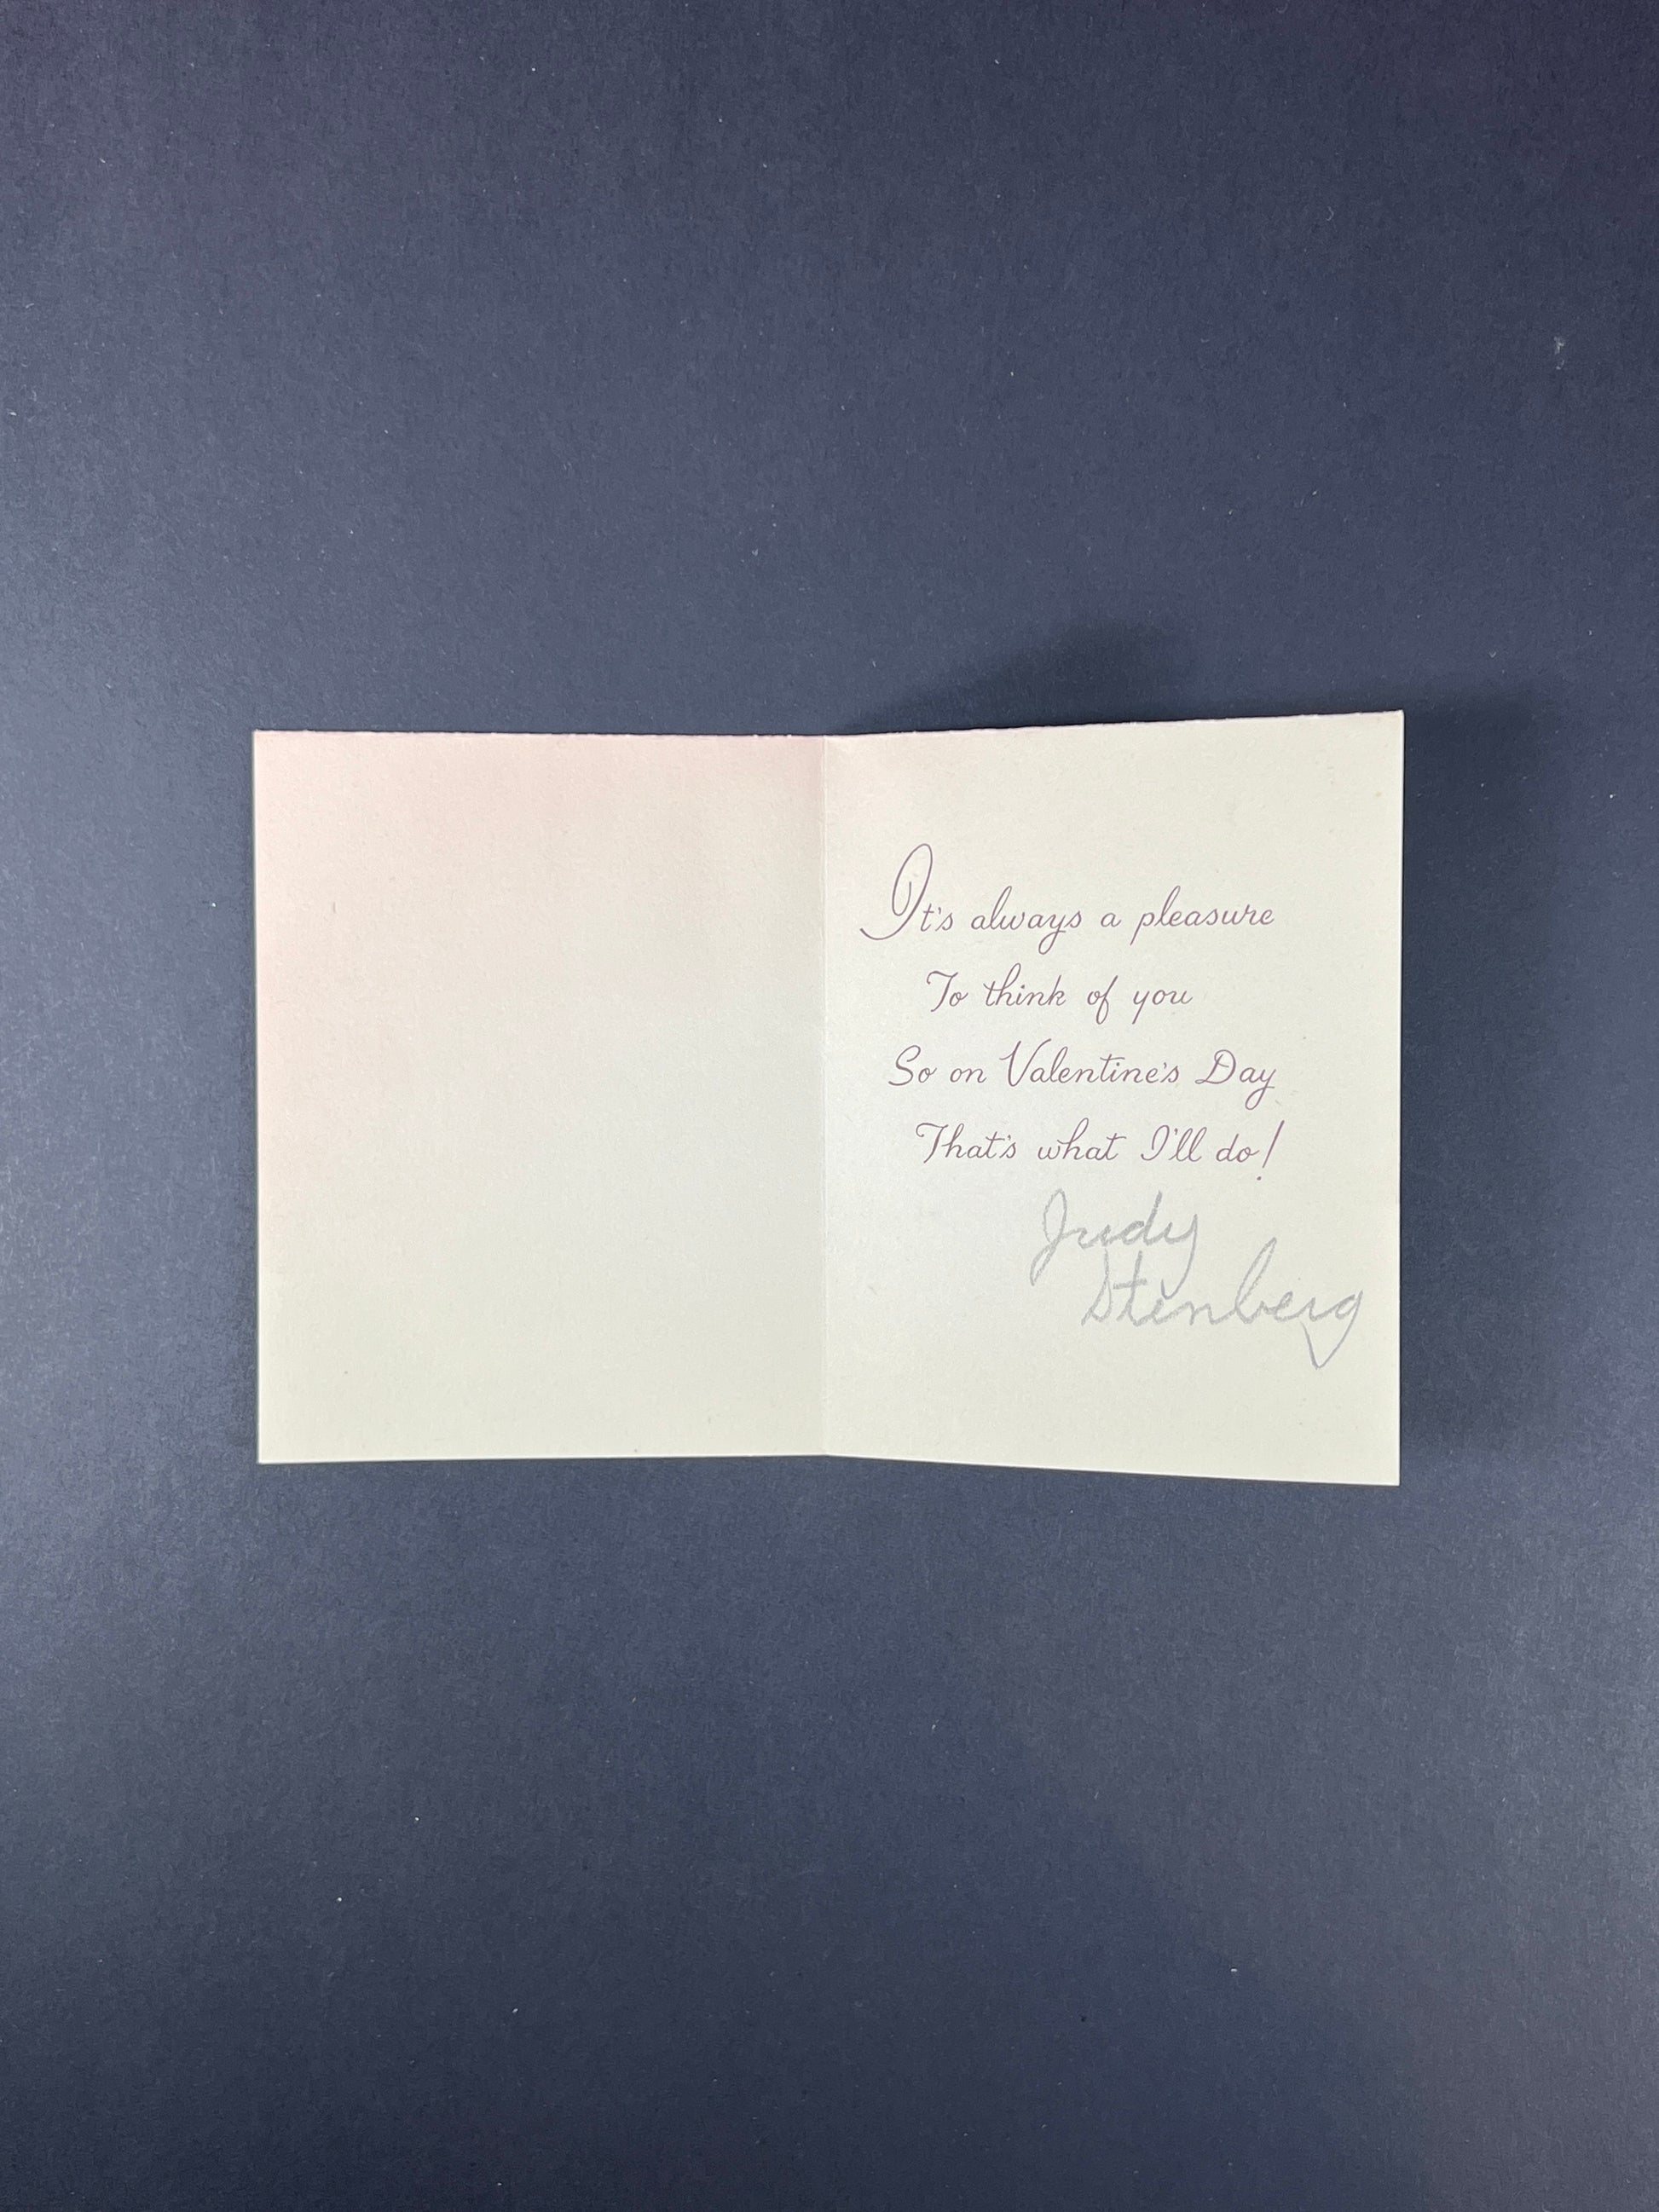 It's always a pleasure
To think of you
So on Valentine's Day
That's what I'll do!
Judy
Stenberg